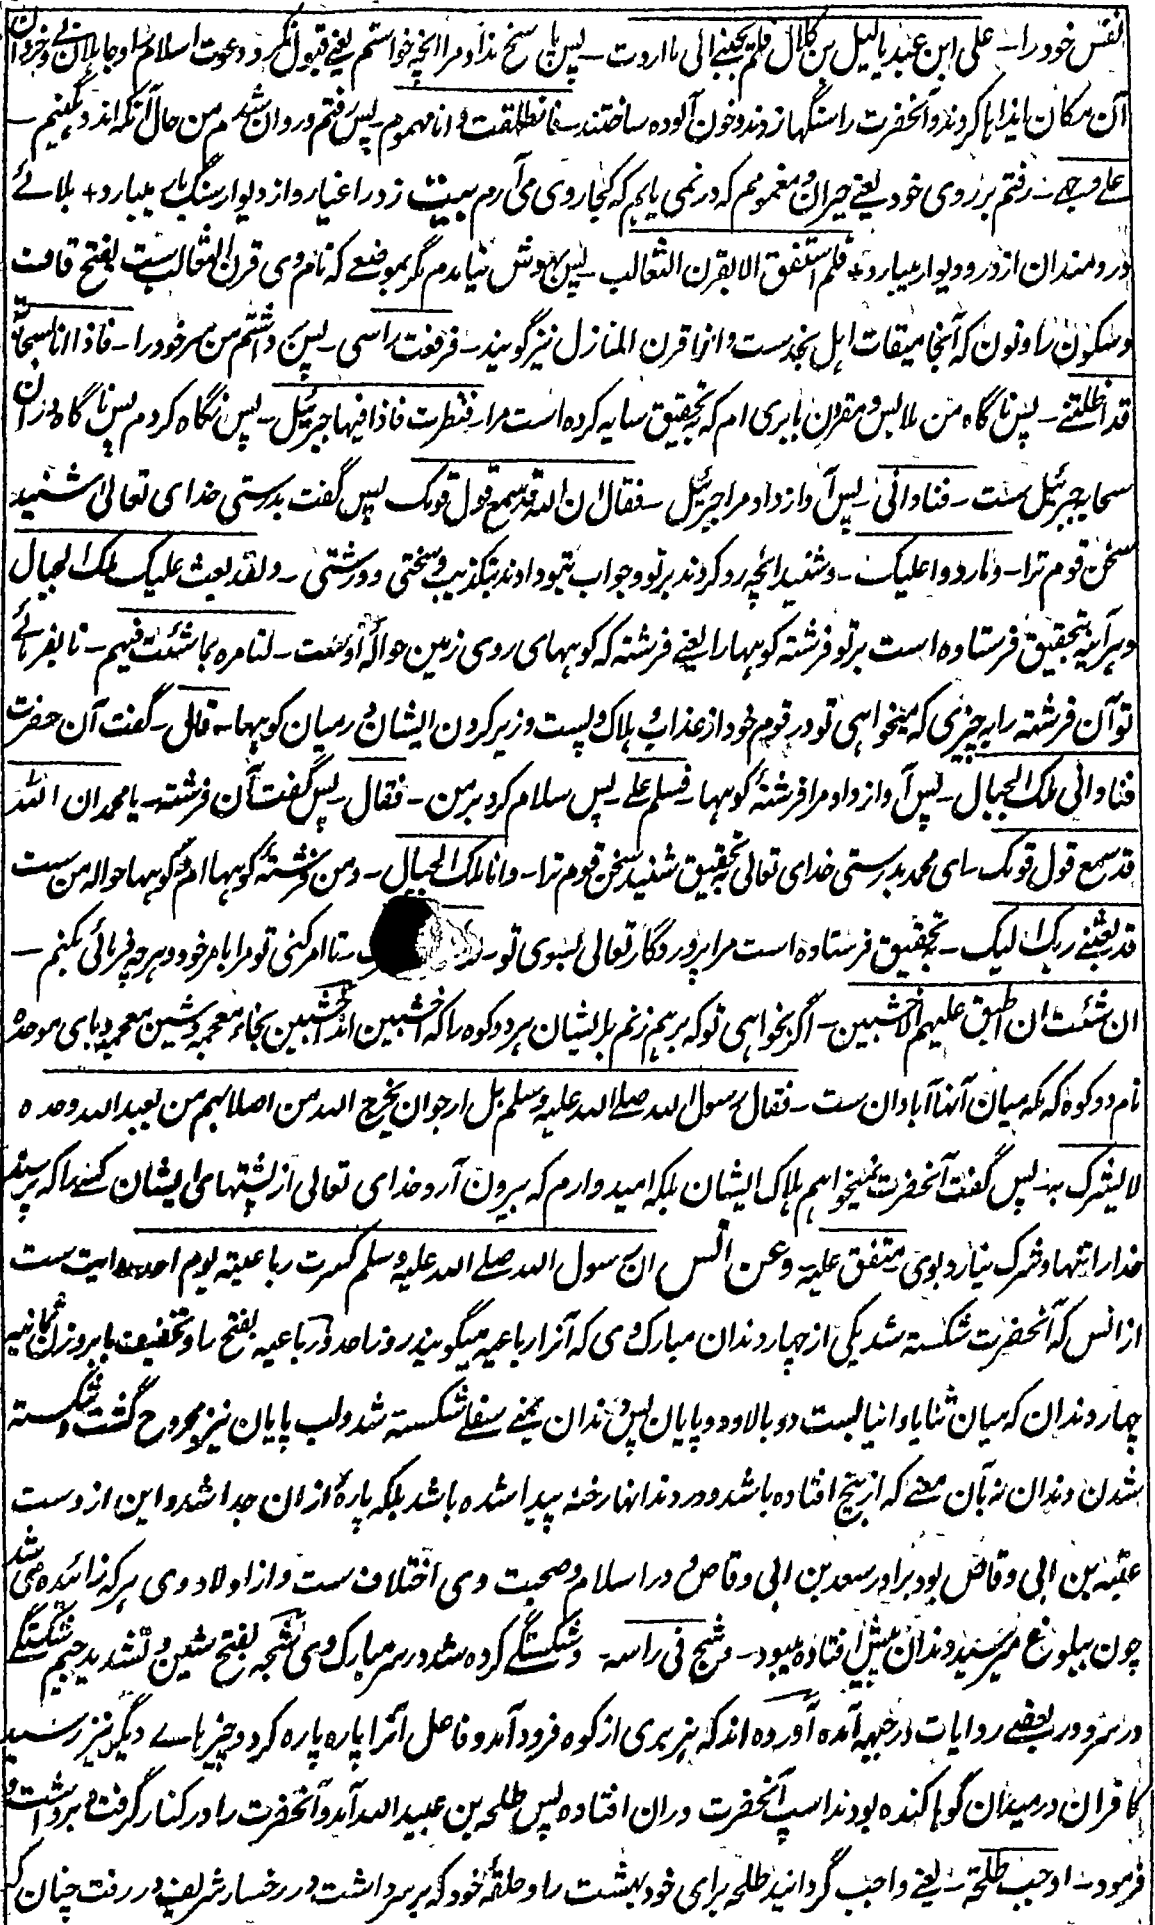 نفس خود را – علی ابن عبد یا لیل بن کلال فلم یجبنی الی ما اردت – پس پاسخ نداد مرا انچه خواستم یعنی قبول نکرد دعوت اسلام را و جاہلان
آن مکان ایذاها کردند و آنحضرت را سنگها زدند و خون آلوده ساختند – فانطلقت و انا مهموم – پس رفتم و روان شدم من حال آنکه اندوهگینم –
علی وجهی – رفتم بر روی خود یعنی حیران و مغموم که در نمی یابم که کجا روی می آرم بیت زدر اغیار و از دیوار سنگ یار میبارد + بلائے
دردمندان از در و دیوار میبارد + فلم استفق الا بقرن الثعالب – پس بهوش نیامدم مگر بموضعے که نام وی قرن الثعالب ست بفتح قاف
و سکون را و نون که آنجا میقات اهل نجد ست و انرا قرن المنازل نیز گویند – فرفعت راسی – پس برداشتم من سر خود را – فاذا انا بسحابة
قد اظلتنی – پس ناگاه من ملابس و مقرون بابری ام که بتحقیق سایه کرده است مرا – فنظرت فاذا فیها جبرئیل – پس نگاه کردم پس ناگاه در ان
سحابه جبرئیل ست – فنادانی – پس آواز داد مرا جبرئیل – فقال ان الله قد سمع قول قومک پس گفت بدرستی خدای تعالی شنید
سخن قوم ترا – و ما ردوا علیک – و شنید انچه رد کردند بر تو و جواب تو دادند بتکذیب و سختی و درشتی – و لقد بعث علیک ملک الجبال
و هرآینه بتحقیق فرستاده است بر تو فرشته کوهها را یعنی فرشته که کوههای روی زمین حواله اوست – لتامره بما شئت فیهم – تا بفرمائے
تو آن فرشته را بچیزی که میخواهی تو در قوم خود از عذاب و هلاک و پست و زیر کردن ایشان در میان کوهها – قال – گفت آن حضرت
فنادانی ملک الجبال – پس آواز داد مرا فرشته کوهها – فسلم علی – پس سلام کرد بر من – فقال – پس گفت آن فرشته – یا محمد ان الله
قد سمع قول قومک – ای محمد بدرستی خدای تعالی بتحقیق شنید سخن قوم ترا – و انا ملک الجبال – و من فرشته کوهها ام و کوهها حواله من ست
قد بعثنی ربک الیک – بتحقیق فرستاده است مرا پروردگار تعالی بسوی تو – تا امر کنی تو مرا بامر خود و هر چه فرمائی بکنم –
ان شئت ان اطبق علیهم الاخشبین – اگر بخواهی تو که بر هم زنم بر ایشان هر دو کوه را که اخشبین اند اخشبین بخاء معجمه و شین معجمه و بای موحده
نام دو کوه که مکه میان آنها آبادان ست – فقال رسول الله صلے الله علیه وسلم بل ارجو ان یخرج الله من اصلابهم من یعبد الله وحده
لا یشرک به – پس گفت آنحضرت نمیخواهم هلاک ایشان بلکه امیدوارم که بیرون آرد خدای تعالی از پشتهای ایشان کسے را که پرستد
خدا را تنها و شرک نیارد بوی متفق علیه وعن انس ان رسول الله صلے الله علیه وسلم کسرت رباعیته یوم احد روایت ست
از انس که آنحضرت شکسته شد یکی از چهار دندان مبارک وی که آنرا رباعیه میگویند روز احد و رباعیه بفتح را و تخفیف با بروزن ثمانیه
چهار دندان که میان ثنایا و انیاب ست دو بالا و دو پایان پس دندان یمنے سفلے شکسته شد و لب پایان نیز مجروح گشت و شکسته
شدن دندان نه بآن معنے که از بیخ افتاده باشد و در دندانها رخنه پیدا شده باشد بلکه پاره ازان جدا شد و این از دست
عتبه بن ابی وقاص بود برادر سعد بن ابی وقاص و در اسلام و صحبت وی اختلاف ست و از اولاد وی هر که زائیده می شد
چون ببلوغ میرسید دندان پیش افتاده میبود – و شج فی راسه – و شکستگے کرده شد در سر مبارک وی شجه بفتح شین و تشدید جیم شکستگے
در سر و در بعضے روایات در جبهه آمده آورده اند که بزبری از کوه فرود آمد و فاصل آنرا پاره پاره کرد و چیزهاے دیگر نیز رسید
کافران در میدان گوها کنده بودند اسپ آنحضرت دران افتاده پس طلحه بن عبید الله آمد و آنحضرت را در کنار گرفت و برداشت و
فرمود – اوجب طلحة – یعنی واجب گردانید طلحه برای خود بهشت را و حلقه خود که بر سر داشت در رخسار شریف در رفت چنان که